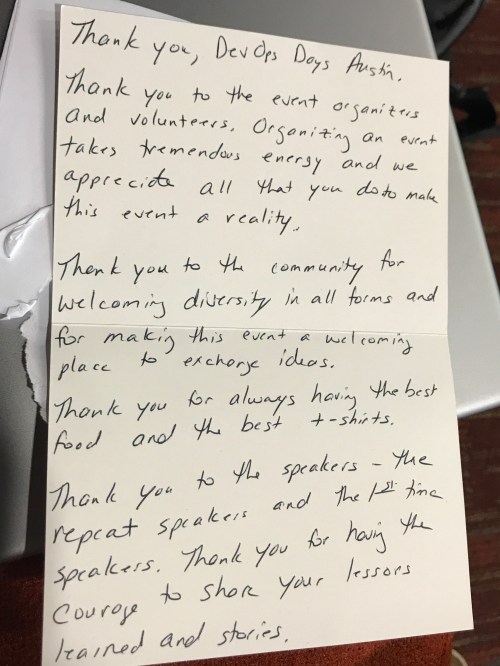 Thank you, DevOps Days Austin.
Thank you to the event organizers
and volunteers. Organizing an event
takes tremendous energy and we
appreciate all that you do to make
this event a reality.
Thank you to the community for
welcoming diversity in all forms and
for making this event a welcoming
place to exchange ideas.
Thank you for always having the best
food and the best t-shirts.
Thank you to the speakers - the
repeat speakers and the 1st time
speakers. Thank you for having the
courage to share your lessons
learned and stories.